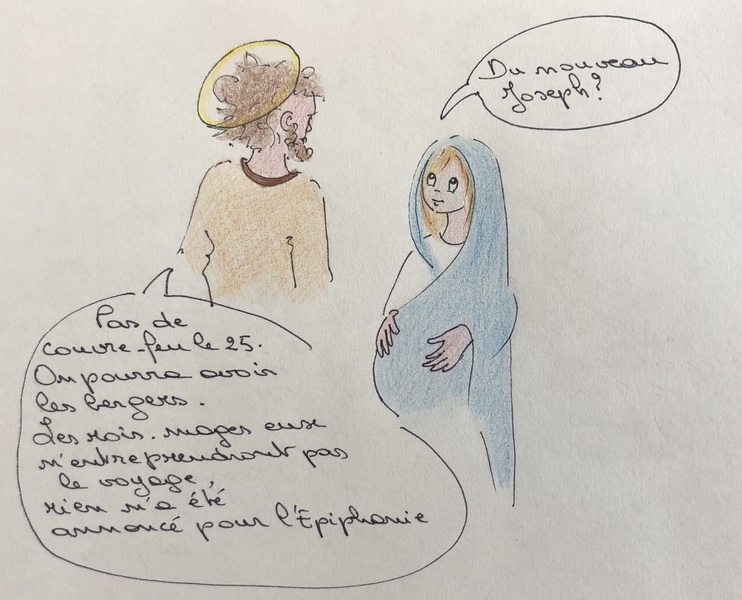 Du nouveau
Joseph?
Pas de
couvre-feu le 25.
On pourra avoir
les bergers.
Les rois-mages eux
n'entreprendront pas
le voyage,
rien n'a été
annoncé pour l'Epiphanie